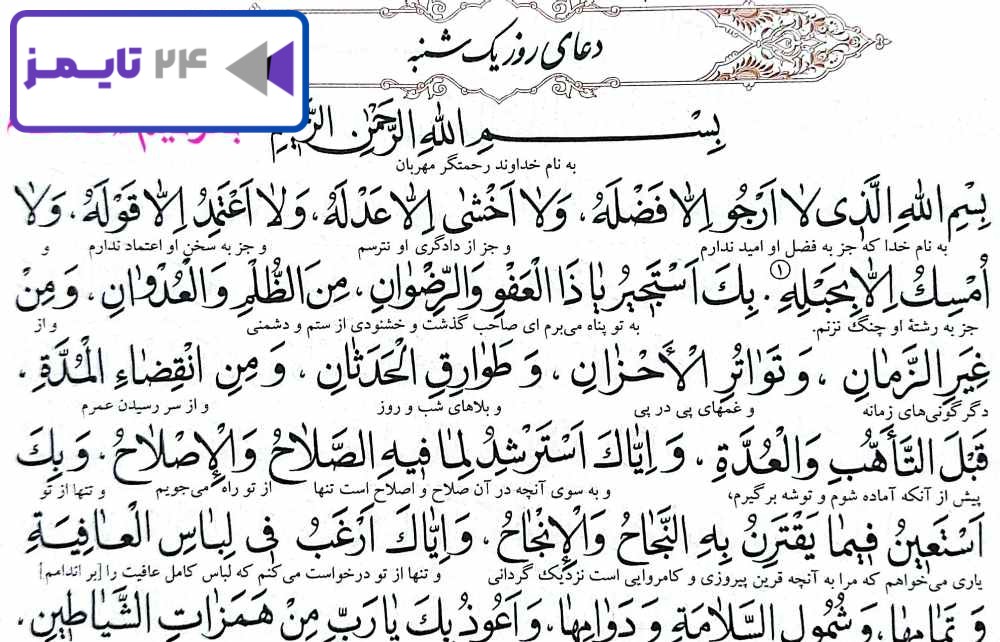 ۲۴ تایمز
دعای روز یک شنبه
بِسْمِ اللهِ الرَّحْمٰنِ الرَّحیمِ
به نام خداوند رحمتگر مهربان
بِسْمِ اللهِ الَّذی لا اَرْجُو اِلاّ فَضْلَهُ، وَلا اَخْشی اِلاّ عَدْلَهُ، وَلا اَعْتَمِدُ اِلاّ قَوْلَهُ، وَلا
به نام خدا که جز به فضل او امید ندارم و جز از دادگری او نترسم و جز به سخن او اعتماد ندارم و
اُمْسِكُ اِلاّ بِحَبْلِهِ.(۱) بِكَ اَسْتَجیرُ یا ذَا الْعَفْوِ وَالرِّضْوانِ، مِنَ الظُّلْمِ وَالْعُدْوانِ، وَ مِنْ
جز به رشتهٔ او چنگ نزنم. به تو پناه می‌برم ای صاحب گذشت و خشنودی از ستم و دشمنی و از
غِیَرِ الزَّمانِ، وَ تَواتُرِ الْأَحْزانِ، وَ طَوارِقِ الْحَدَثانِ، وَ مِنِ انْقِضاءِ الْمُدَّةِ،
دگرگونی‌های زمانه و غمهای پی در پی و بلاهای شب و روز و از سر رسیدن عمرم
قَبْلَ التَّأَهُّبِ وَالْعُدَّةِ، وَ اِیّاكَ اَسْتَرْشِدُ لِما فیهِ الصَّلاحُ وَالْإِصْلاحُ، وَ بِكَ
پیش از آنکه آماده شوم و توشه برگیرم، و به سوی آنچه در آن صلاح و اصلاح است تنها از تو راه می‌جویم و تنها از تو
اَسْتَعینُ فیما یَقْتَرِنُ بِهِ النَّجاحُ وَالْإِنْجاحُ، وَ اِیّاكَ اَرْغَبُ فی لِباسِ الْعافِیَةِ
یاری می‌خواهم که مرا به آنچه قرین پیروزی و کامروایی است نزدیک گردانی و تنها از تو درخواست می‌کنم که لباس کامل عافیت را [بر اندامم]
وَ تَمامِها، وَ شُمُولِ السَّلامَةِ وَ دَوامِها، وَ اَعُوذُ بِكَ یا رَبِّ مِنْ هَمَزاتِ الشَّیاطینِ،